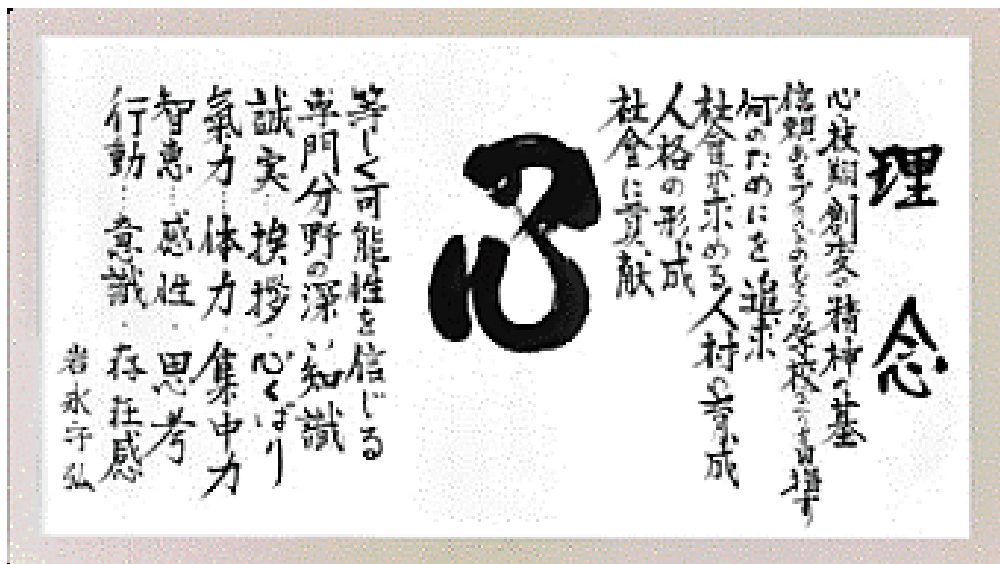 理念
心技翔創変の精神の基
信頼ある 学校を目指す
何のためにを追求
社会が求める人材の育成
人格の形成
社会に貢献
心
等しく可能性を信じる
専門分野の深い知識
誠実…挨拶…心くばり
氣力…体力…集中力
智恵…感性…思考
行動…意識…存在感
岩永守弘